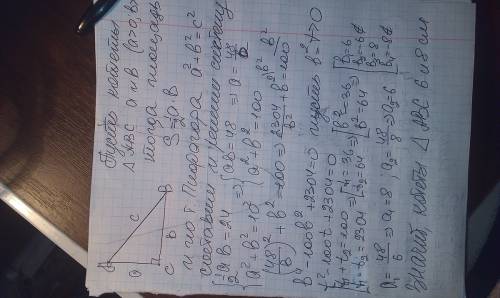 Пусть катеты
△ABC a и b (a>0, b>
тогда площадь
S = 1/2 a·b
и по т. Пифагора a² + b² = c²
составим и решим систему
{ 1/2 ab = 24 => { ab = 48 => a = 48/b
{ a² + b² = 10² { a² + b² = 100
(48/b)² + b² = 100 => 2304/b² + b² = 100 | b²
b⁴ - 100b² + 2304 = 0 пусть b² = t > 0
t² - 100t + 2304 = 0
{ t₁ + t₂ = 100 => [ t₁ = 36 => [ b² = 36 => [ b₁ = 6
{ t₁ · t₂ = 2304 [ t₂ = 64 [ b² = 64 [ b₂ = -6
[ b₃ = 8
[ b₄ = -8
a₁ = 48/6 => a₁ = 8; a₂ = 48/8 => a₂ = 6
Значит, катеты △ABC 6 и 8 см
C
B
a
b
C